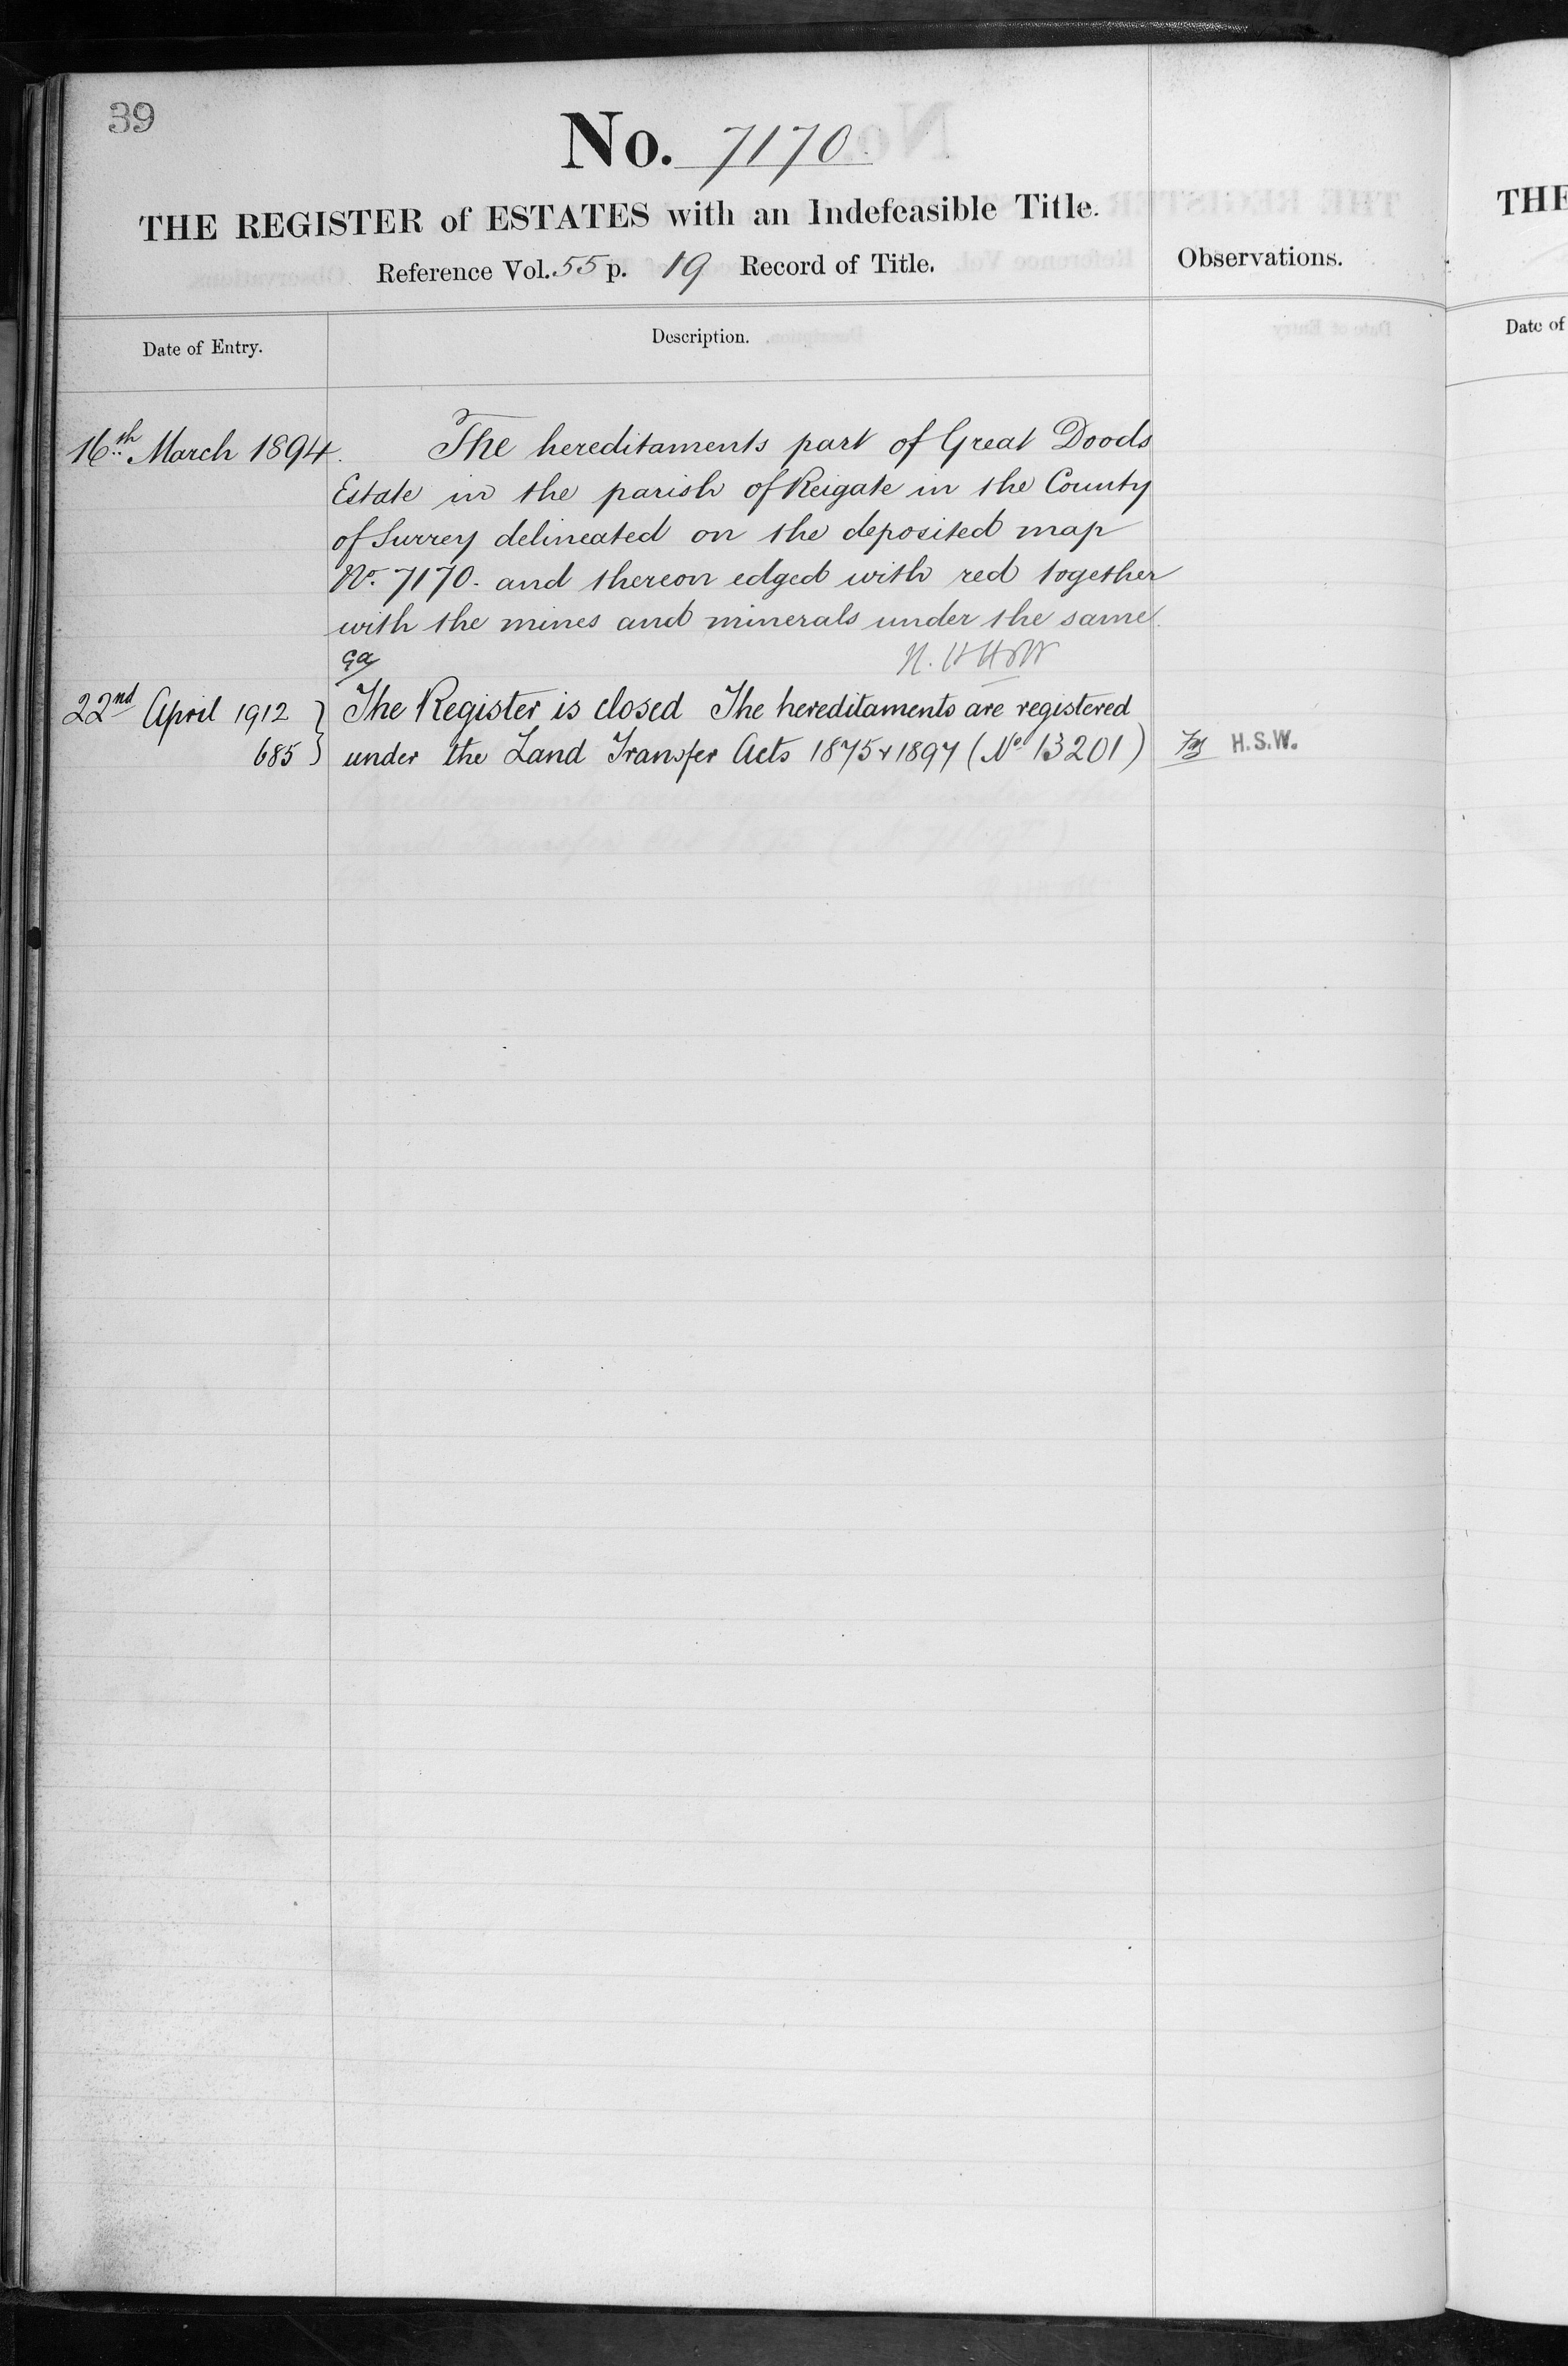 39
No. 7170
THE REGISTER of ESTATES with an Indefeasible Title.
Reference Vol. 55 p. 19 Record of Title.
Observations.
Date of Entry.
Description.
16th March 1894.
The hereditaments part of Great Doods
Estate in the parish of Reigate in the County
of Surrey delineated on the deposited map
No. 7170. and thereon edged with red together
with the mines and minerals under the same.
22nd April 1912
685
The Register is closed The hereditaments are registered
under the Land Transfer Acts 1875 & 1897 (No 13201)
H.S.W.
THE
Date of